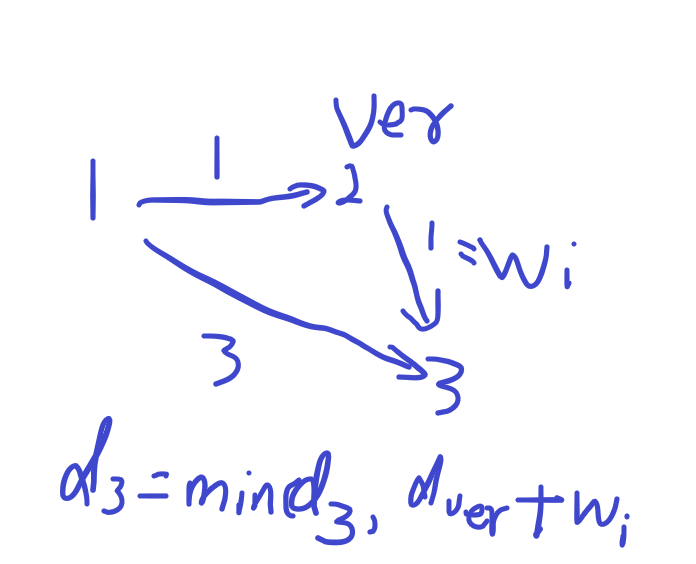 ver
1 1 2
1 = w i
3 3
d3 = min(d3, dver + wi